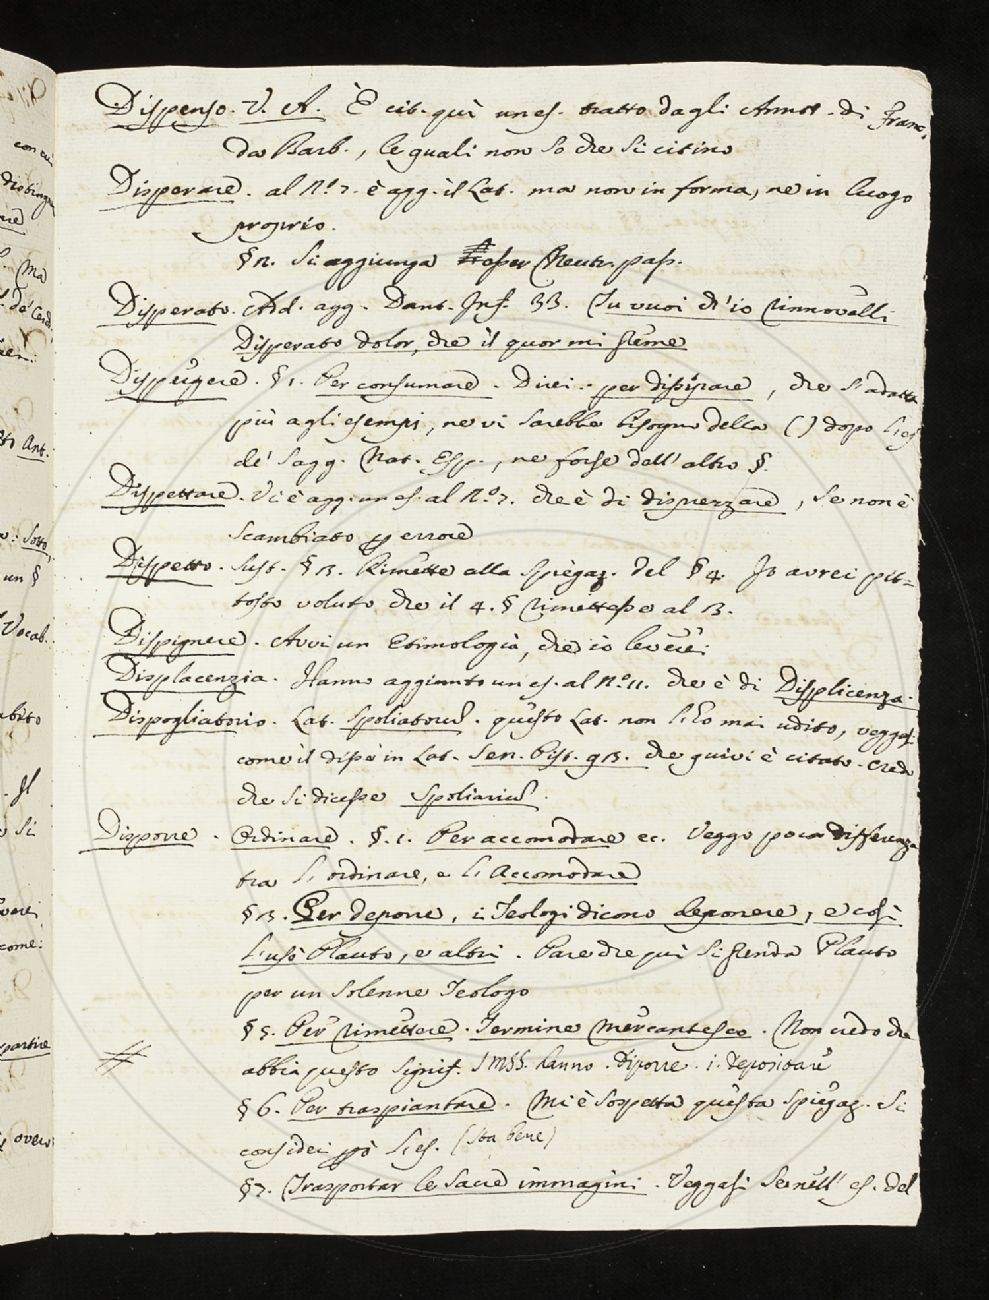 Dispenso. V. A. È cit. quì un es. tratto dagli Annot. di Franc.
da Barb., le quali non so che si citino
Disperare. al N.º 7. è agg. il Lat. ma non in forma, ne in luogo
proprio.
§ 12. Si aggiunga Neutr. pass.
Disperato. Add. agg. Dant. Inf. 33. Tu vuoi ch'io rinnovelli
Disperato dolor, che il quor mi preme
Dispergere. § 1. Per consumare. Direi. per dissipare, che s'adatta
più agli esempi, ne vi sarebbe bisogno della () dopo l'es
de' Sagg. Nat. Esp., ne forse dell'altro §.
Dispettare. Vi è agg. un es. al N.º 7. che è di disprezzare, se non è
scambiato per errore
Dispetto. Sust. § 13. Rimette alla spiegaz. del § 4. Io avrei pit=
tosto voluto, che il 4. § rimettesse al 13.
Dispignere. Avvi un Etimologia, che io leverei
Displacenzia. Hanno aggiunto un es. al N.º 11. che è di Displicenza.
Dispogliatorio. Lat. Spoliatorium. questo Lat. non l'ho mai udito, veggasi
come il disse in Lat. Sen. Pist. 93. che quivi è citato. Credo
che si dicesse Spoliarium.
Disporre. Ordinare. §. 1. Per accomodare ec. Veggo poca differenza
tra l'ordinare, e l'Accomodare
§ 13. Per deporre, i Teologi dicono deponere, e così
l'usò Plauto, e altri. Pare che quì si prenda Plauto
per un solenne Teologo
§ 5. Per rimettere. Termine mercantesco. Non credo che
abbia questo signif. I MSS. hanno. Diporre. i. depositare
§ 6. Per traspiantare. Mi è sospetta questa spiegaz. Si
consideri però l'es. (sta bene)
§ 7. Trasportar le Sacre immagini. Veggasi es. del